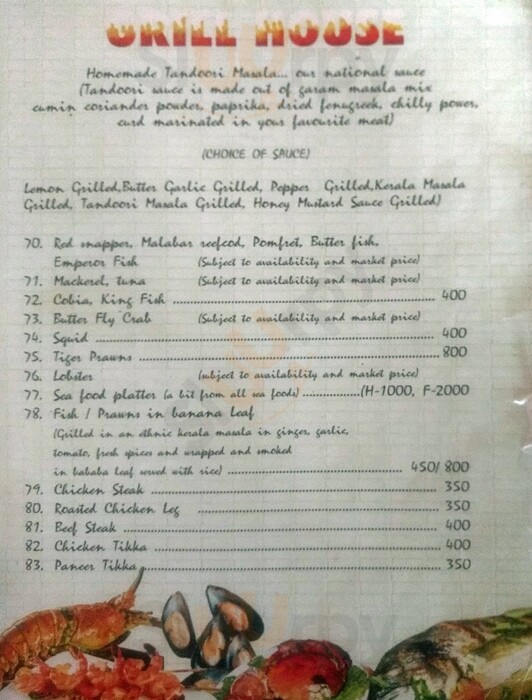 GRILL HOUSE
Homemade Tandoori Masala... our national sauce
(Tandoori sauce is made out of garam masala mix
cumin coriander powder, paprika, dried fenugreek, chilly power,
curd marinated in your favourite meat)
(CHOICE OF SAUCE)
Lemon Grilled,Butter Garlic Grilled, Pepper Grilled,Kerala Masala
Grilled, Tandoori Masala Grilled, Honey Mustard Sauce Grilled)
70. Red snapper, Malabar reefcod, Pomfret, Butter fish,
Emperor Fish (Subject to availability and market price)
71. Mackerel, tuna (Subject to availability and market price)
72. Cobia, King Fish ........ 400
73. Butter Fly Crab (Subject to availability and market price)
74. Squid ........ 400
75. Tiger Prawns ........ 800
76. Lobster (subject to availability and market price)
77. Sea food platter (a bit from all sea foods) ........(H-1000, F-2000
78. Fish / Prawns in banana Leaf
(Grilled in an ethnic kerala masala in ginger, garlic,
tomato, fresh spices and wrapped and smoked
in bababa leaf served with rice) ........ 450/ 800
79. Chicken Steak ........ 350
80. Roasted Chicken Leg ........ 350
81. Beef Steak ........ 400
82. Chicken Tikka ........ 400
83. Paneer Tikka ........ 350